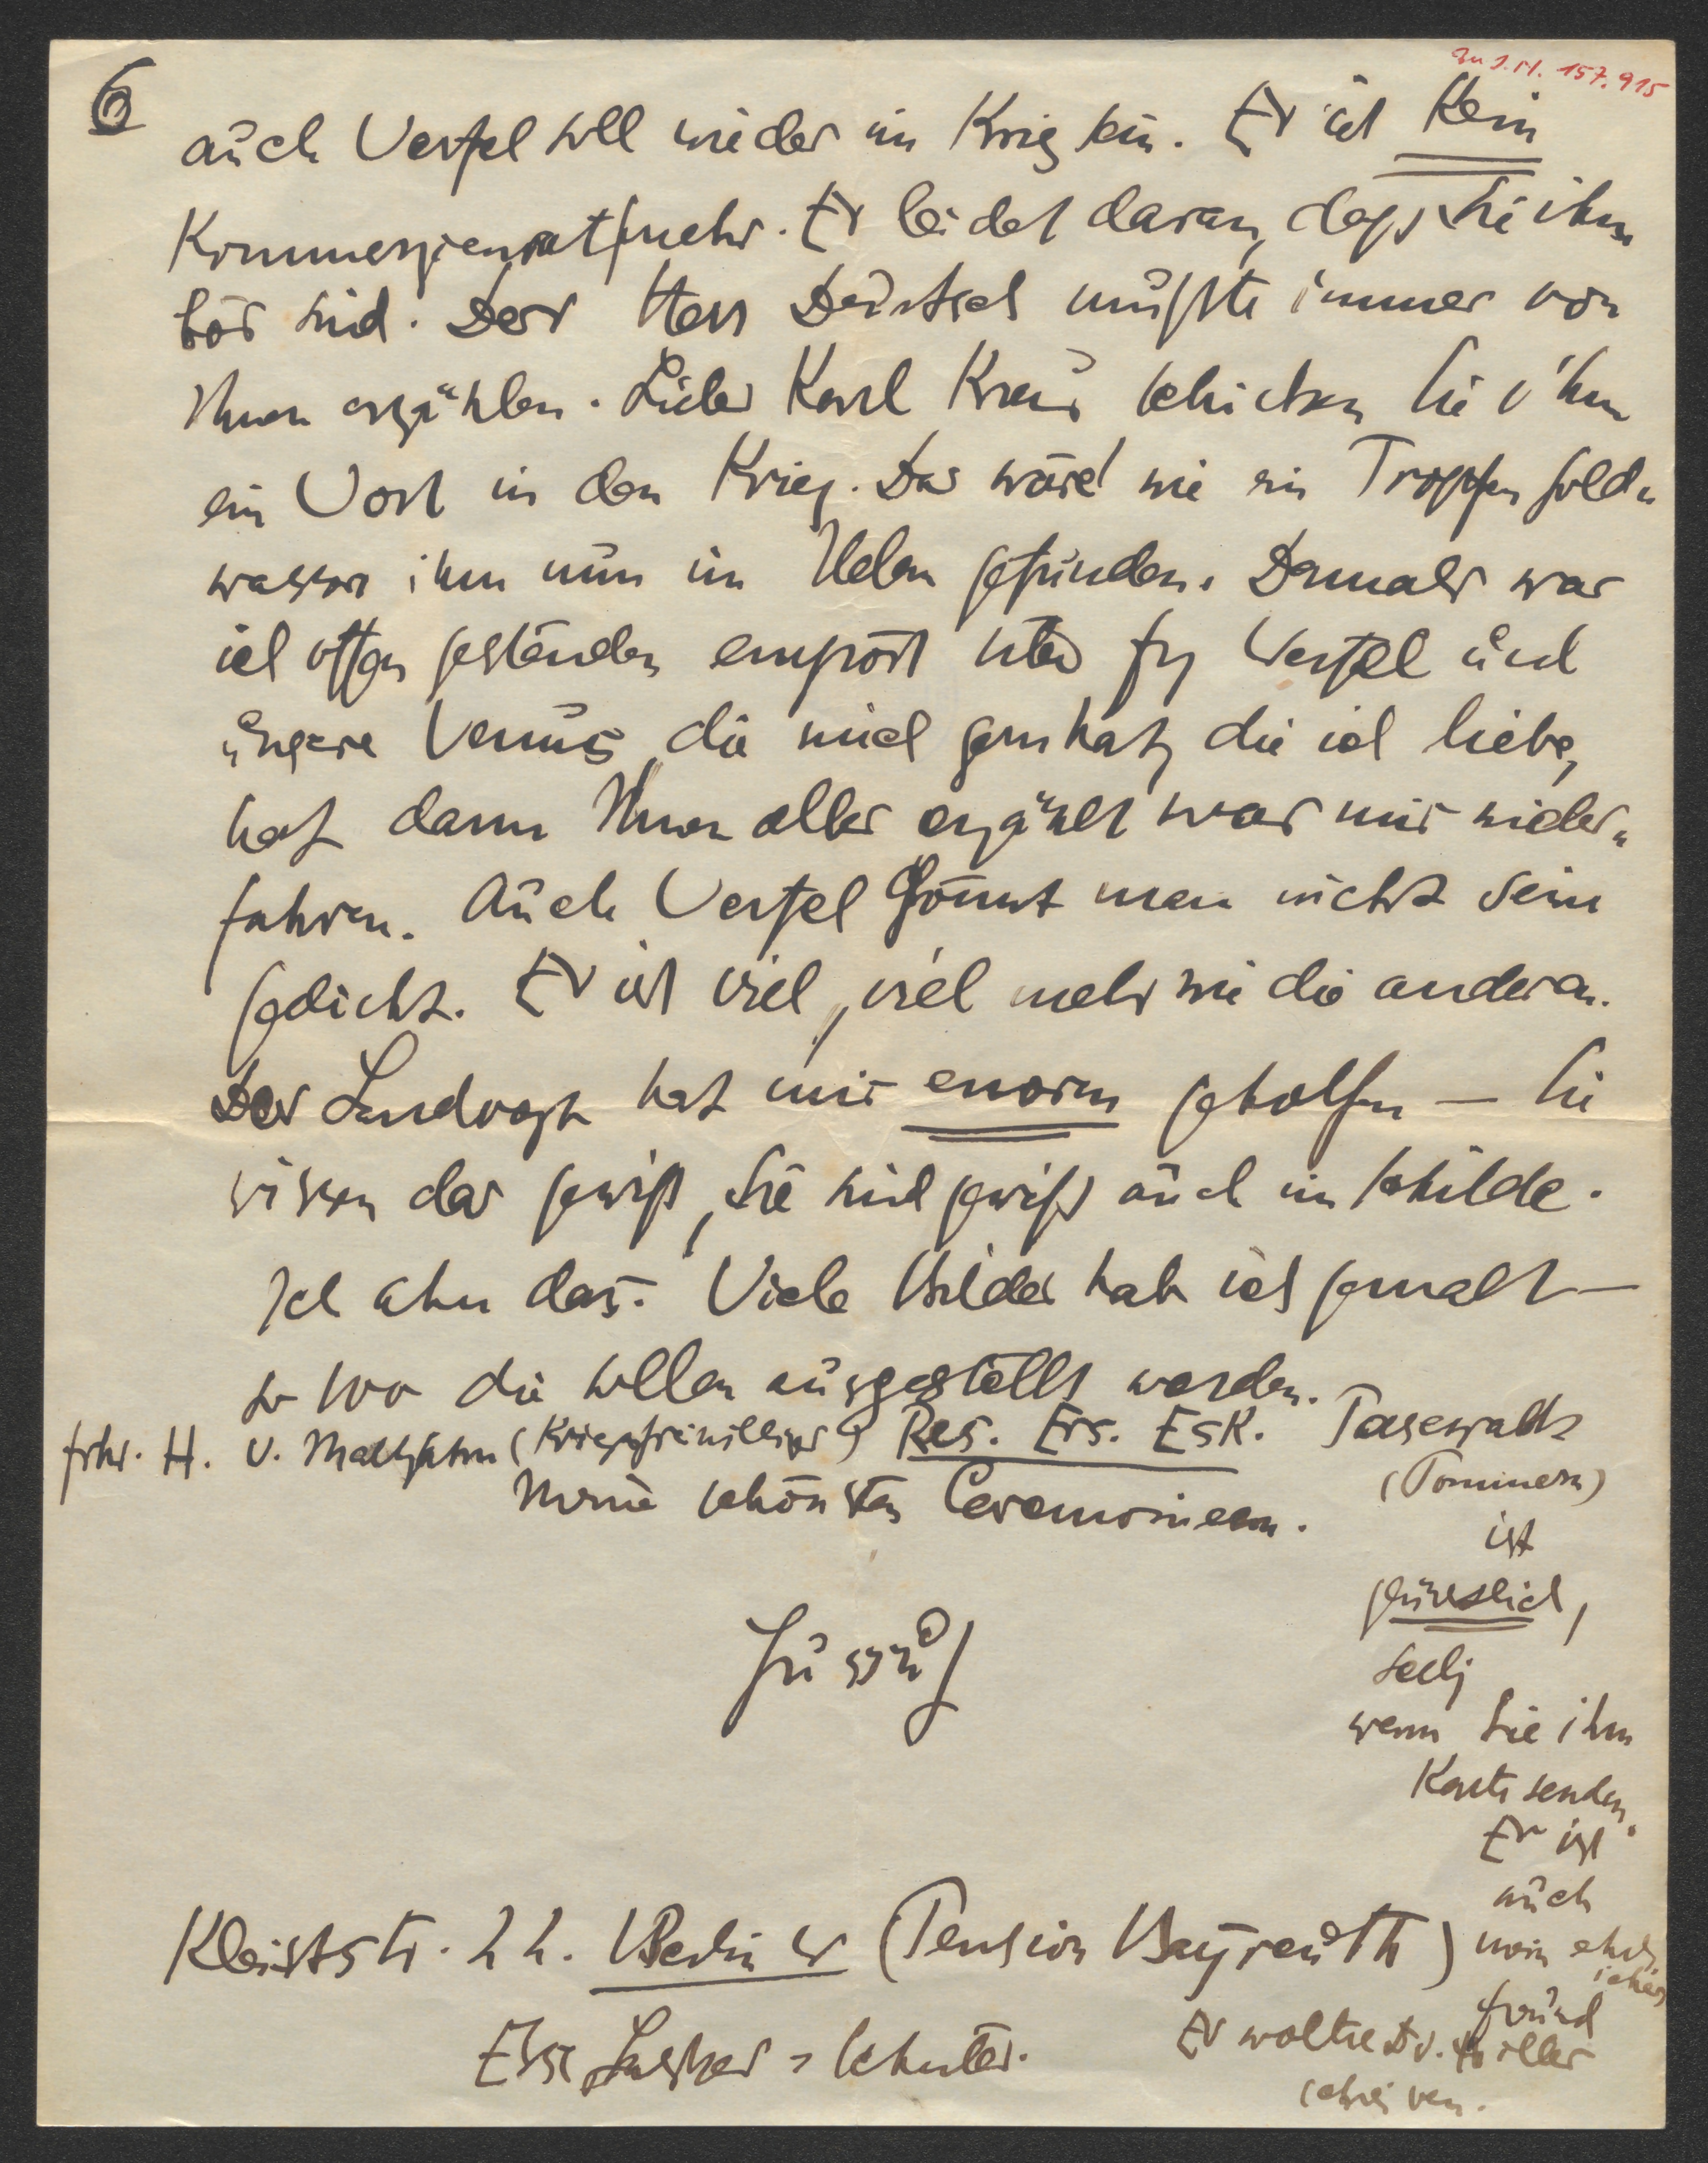 6
zu J.N. 157.915
auch Werfel soll wieder im Krieg sein. Er ist kein
Kommerzienrat mehr. Er leidet daran, dass Sie ihm
bös sind. Der Herr Deutsch mußte immer von
Ihnen erzählen. Lieber Karl Kraus schicken Sie ihm
ein Wort in den Krieg. Das wäre wie ein Tropfen Gold-
wasser ihm nun im gefunden. Damals war
ich offen gestanden empört über Werfel und
unsere Venus, die mich gern hat, die ich liebe,
hat dann Ihnen alles erzählt was mir wieder-
fahren. Auch Werfel gönnt man nicht sein
Gedicht. Er ist viel, viel mehr wie die anderen.
Der Landvogt hat mir enorm geholfen — Sie
wissen das gewiß, Sie sind gewiß auch im Bilde.
Ich ahn das. Viele Bilder hab ich gemalt —
so 100 die sollen ausgestellt werden.
Frhr. H. v. Maltzahn (Kriegsfreiwilliger) Res. Ers. Esk. Pasewalk
(Pommern)
Meine schönsten Ceremonieen.
ist
glücklich,
seelig
wenn Sie ihm
Karte senden.
Er ist
auch
mein ehrlicher
Freund
Er wollte Dr. Hiller
schreiben.
Jussuf
Kleiststr. 22. Berlin W (Pension Bayreuth)
Else Lasker-Schüler.